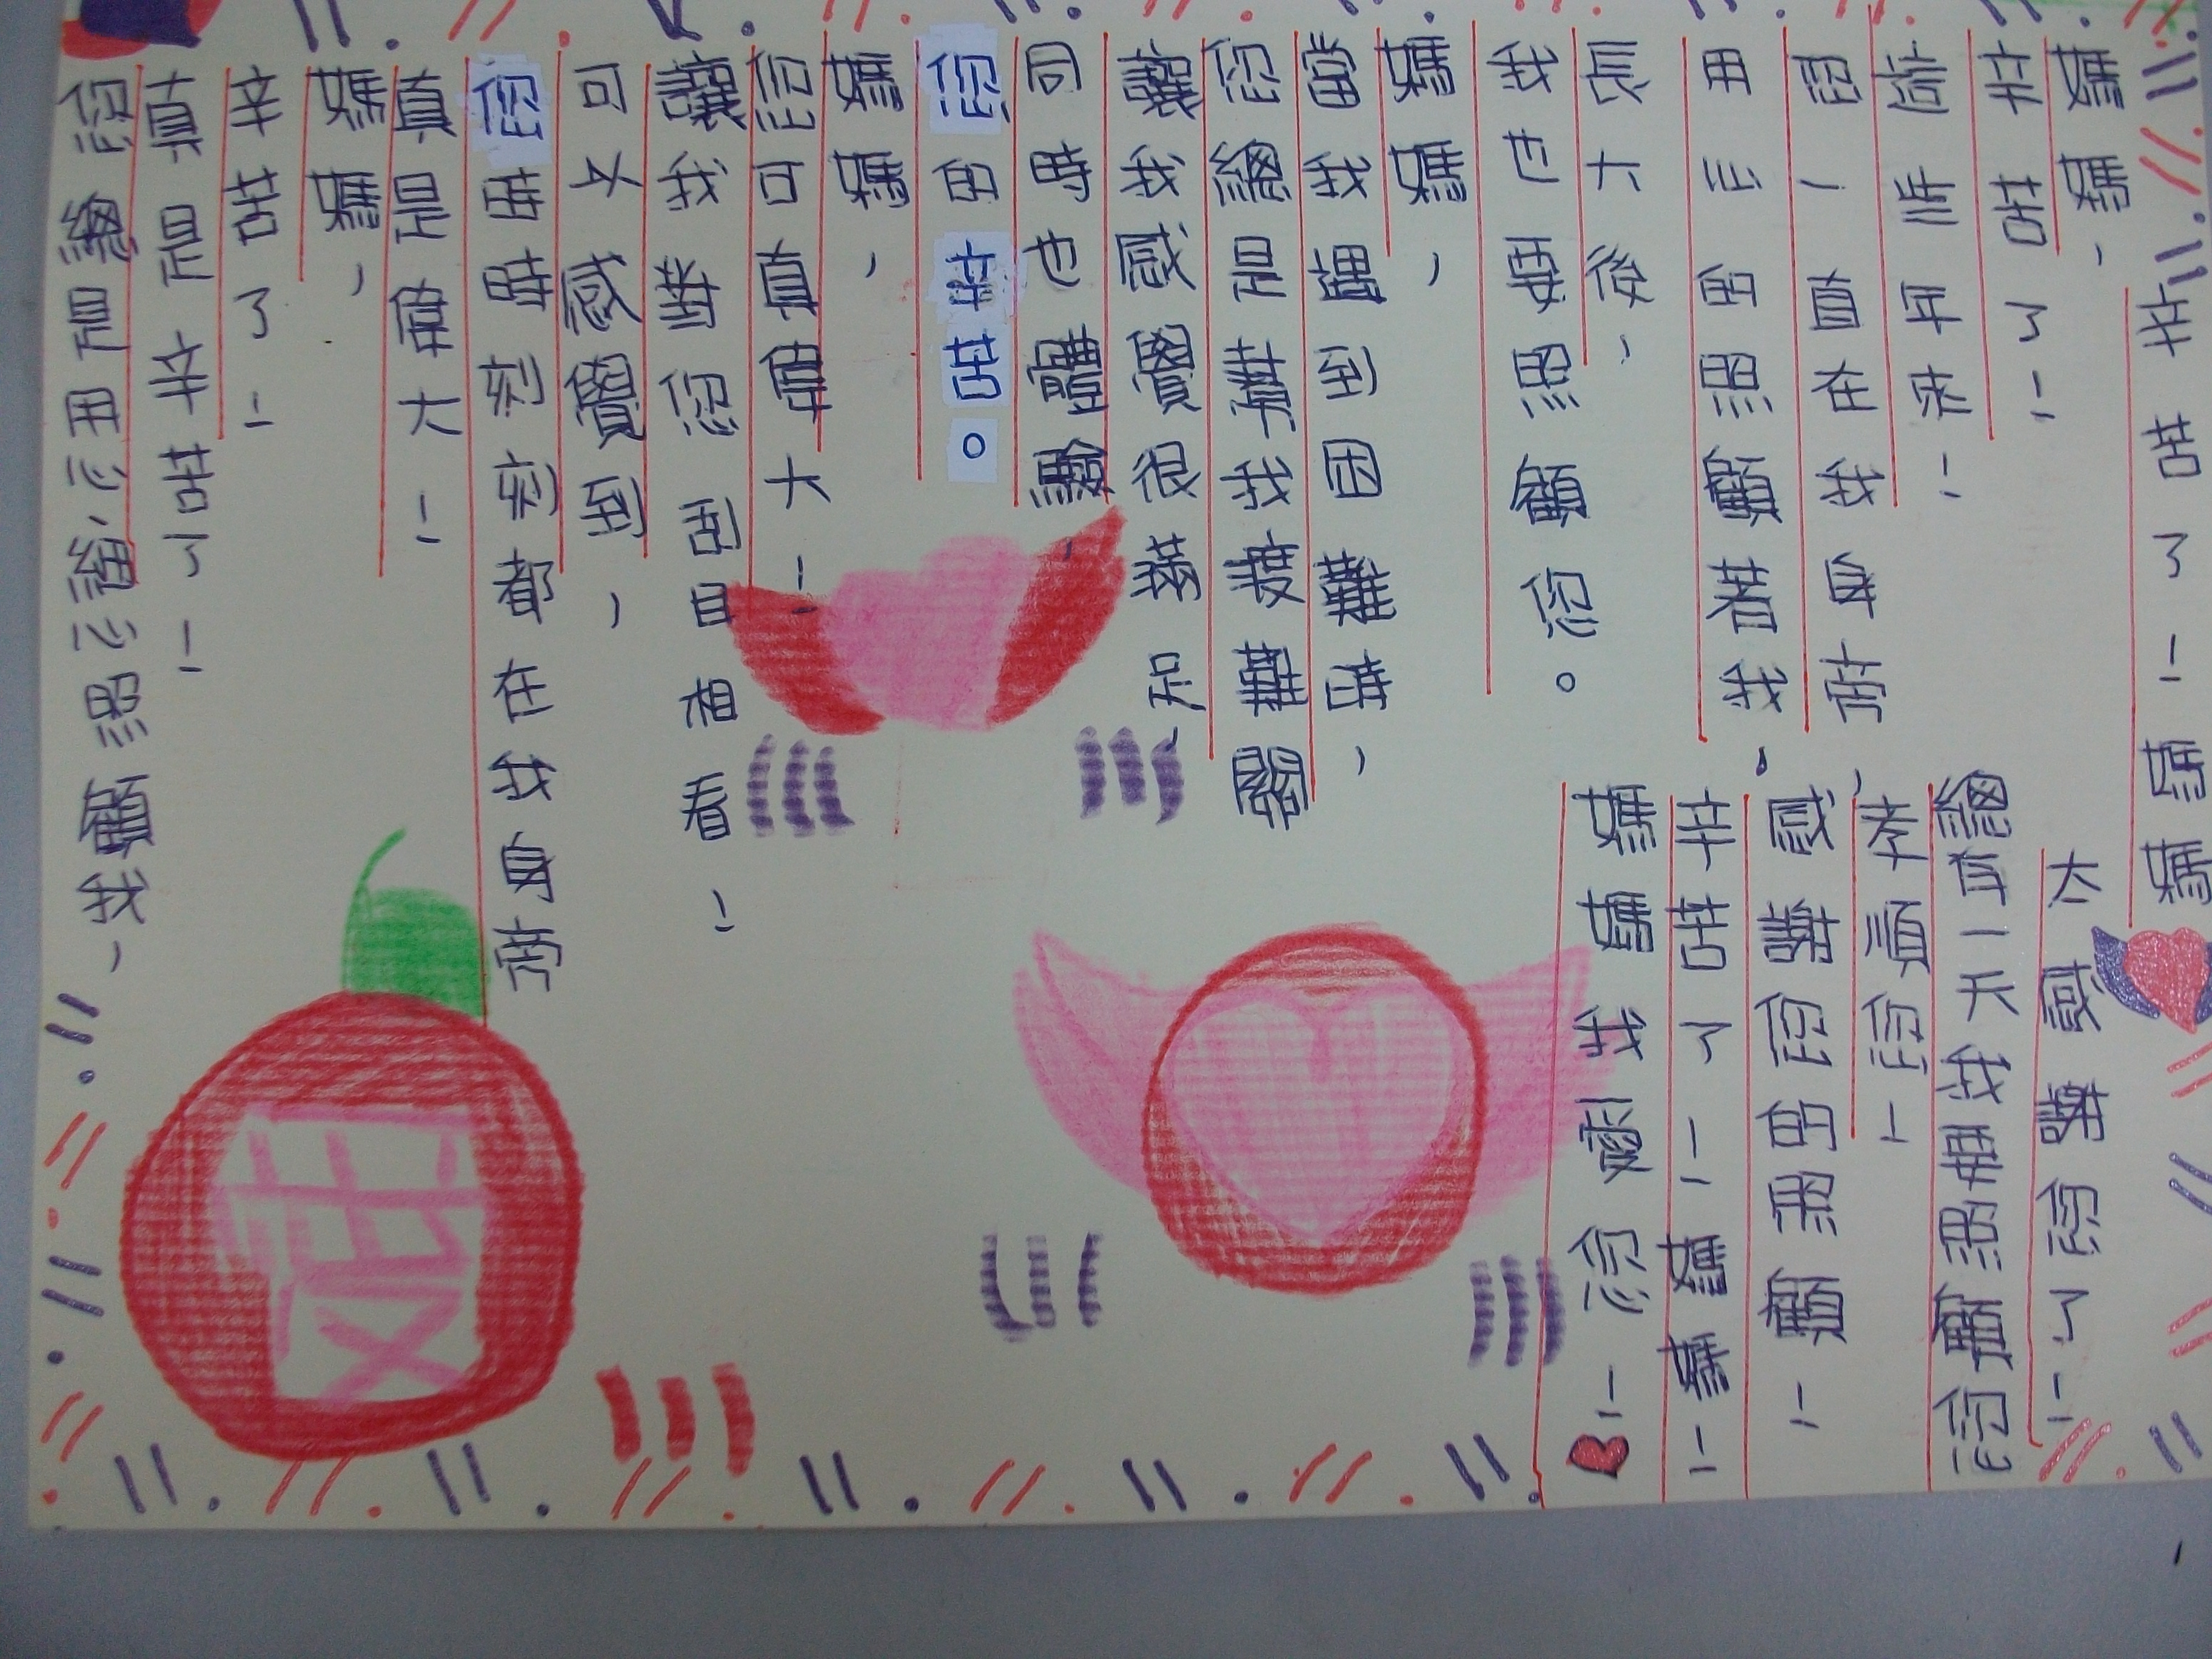 辛苦了！媽媽
媽媽、
辛苦了！
這些年來！
您一直在我身旁
用心的照顧著我、
長大後、
我也要照顧您。
媽媽，
當我遇到困難時，
您總是幫我渡難關
讓我感覺很滿足、
同時也體驗、
您的辛苦。
媽媽，
您可真偉大！
讓我對您刮目相看！
可又感覺到，
您時時刻刻都在我身旁
真是偉大！
媽媽，
辛苦了！
真是辛苦了！
您總是用心、細心照顧我、
太感謝您了！
總有一天我要照顧您、
孝順您！
感謝您的照顧！
辛苦了！媽媽！
媽媽我愛您！